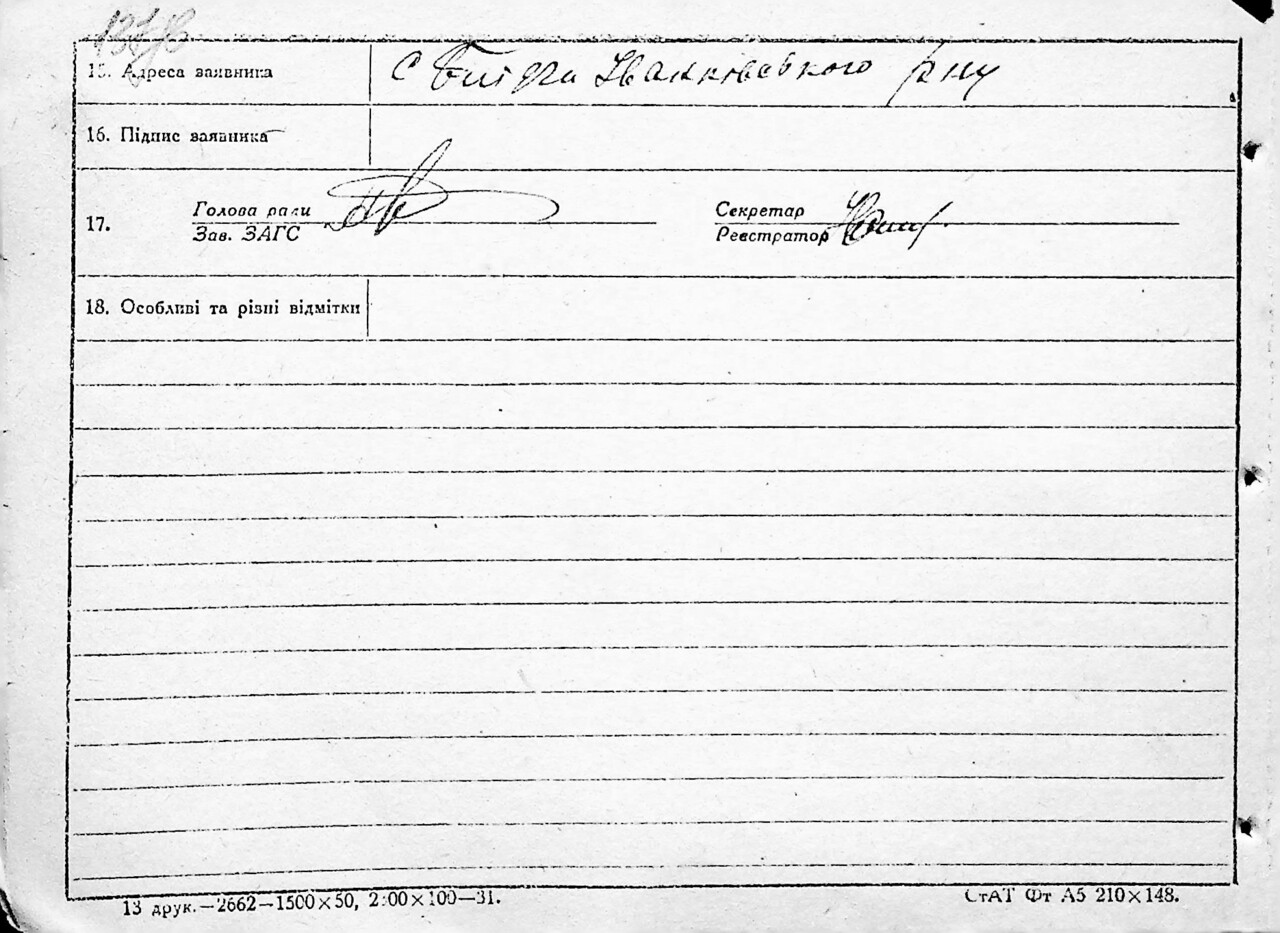 15. Адреса заявника С Іванківського р-ну
16. Підпис заявника
17. Голова ради Секретар
Зав. ЗАГС Реєстратор
18. Особливі та різні відмітки
13 друк.—2662—1500×50, 2:00×100—31. СтАТ Фт А5 210×148.